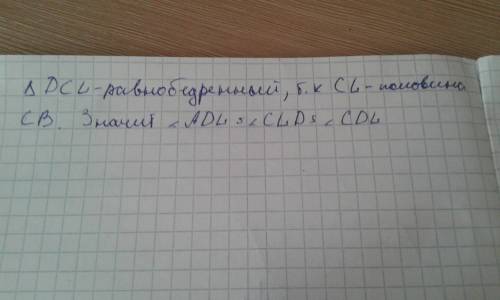 Δ DCL-равнобедренный, т.к CL-половина
CB. Значит <ADL=<CLD=<CDL